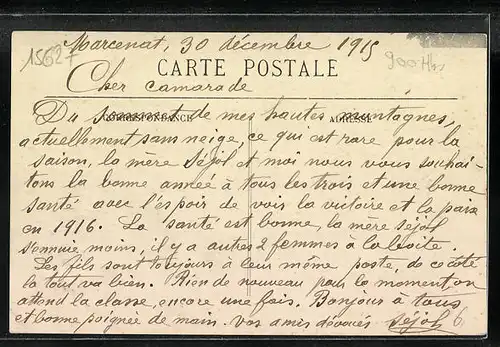 15627
Marcenat, 30 décembre 1915
900 Hv
CARTE POSTALE
Cher camarade
CORRESPONDANCE
Du sommet de mes hautes montagnes,
actuellement sans neige, ce qui est rare pour la
saison, la mère Séjol et moi nous vous souhai-
tons la bonne année à tous les trois et une bonne
santé avec l'espoir de voir la victoire et la paix
en 1916. La santé est bonne, la mère Séjol
s'ennuie moins, il y a autres 2 femmes à la boite.
Les fils sont toujours à leur même poste, de ce côté
là tout va bien. Rien de nouveau pour le moment, on
attend la classe, encore une fois. Bonjour à tous
et bonne poignée de main. Vos amis dévoués Séjol
6